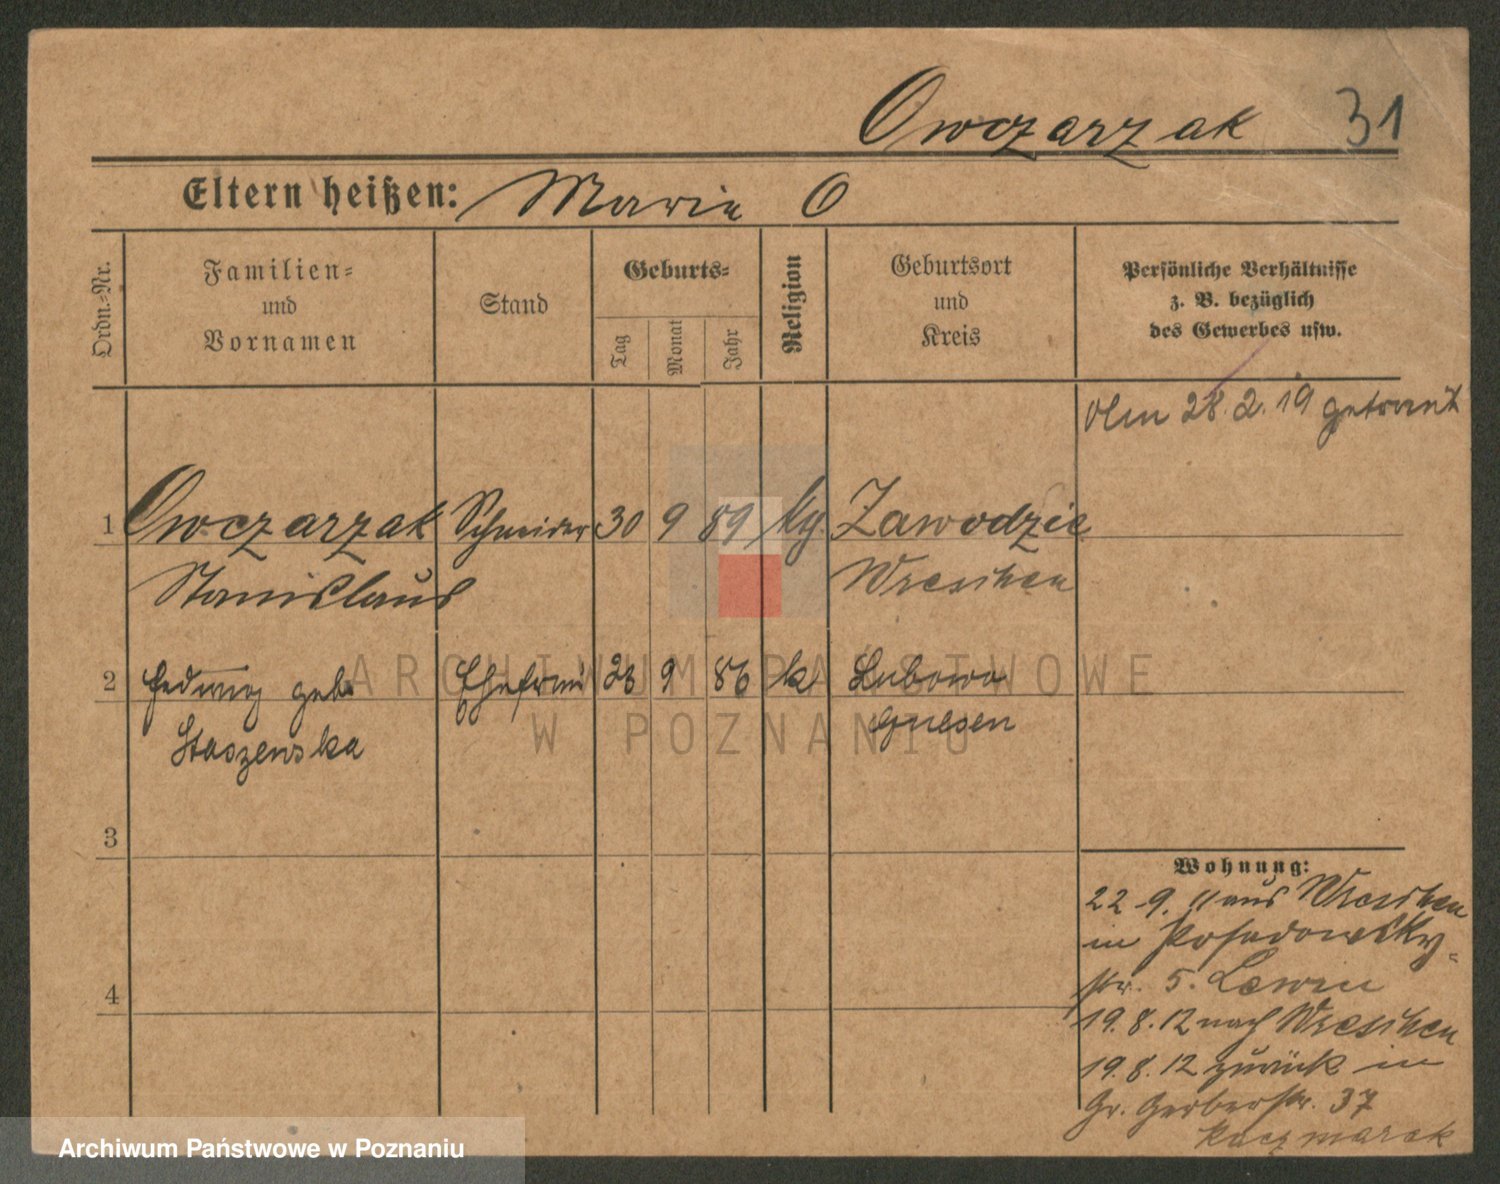 Owczarzak 31
Eltern heißen: Marie O
Ordn.-Nr.
Familien-
und
Vornamen
Stand
Geburts-
Tag
Monat
Jahr
Religion
Geburtsort
und
Kreis
Persönliche Verhältnisse
z. B. bezüglich
des Gewerbes usw.
Am 28.2.19 getraut
1 Owczarzak Schneider 30 9 89 Zawodzie
Stanislaus Wreschen
2 Hedwig geb. Ehefrau 9 86 k Lubowo
Staszewska Gnesen
3
4
Wohnung:
22 9. 11 aus Wreschen
in Posadowsky-
str. 5. Lewin
19.8.12 nach Wreschen
19.8.12 zurück in
Gr. Gerberstr. 37
Kaczmarek
ARCHIWUM PAŃSTWOWE
W POZNANIU
Archiwum Państwowe w Poznaniu